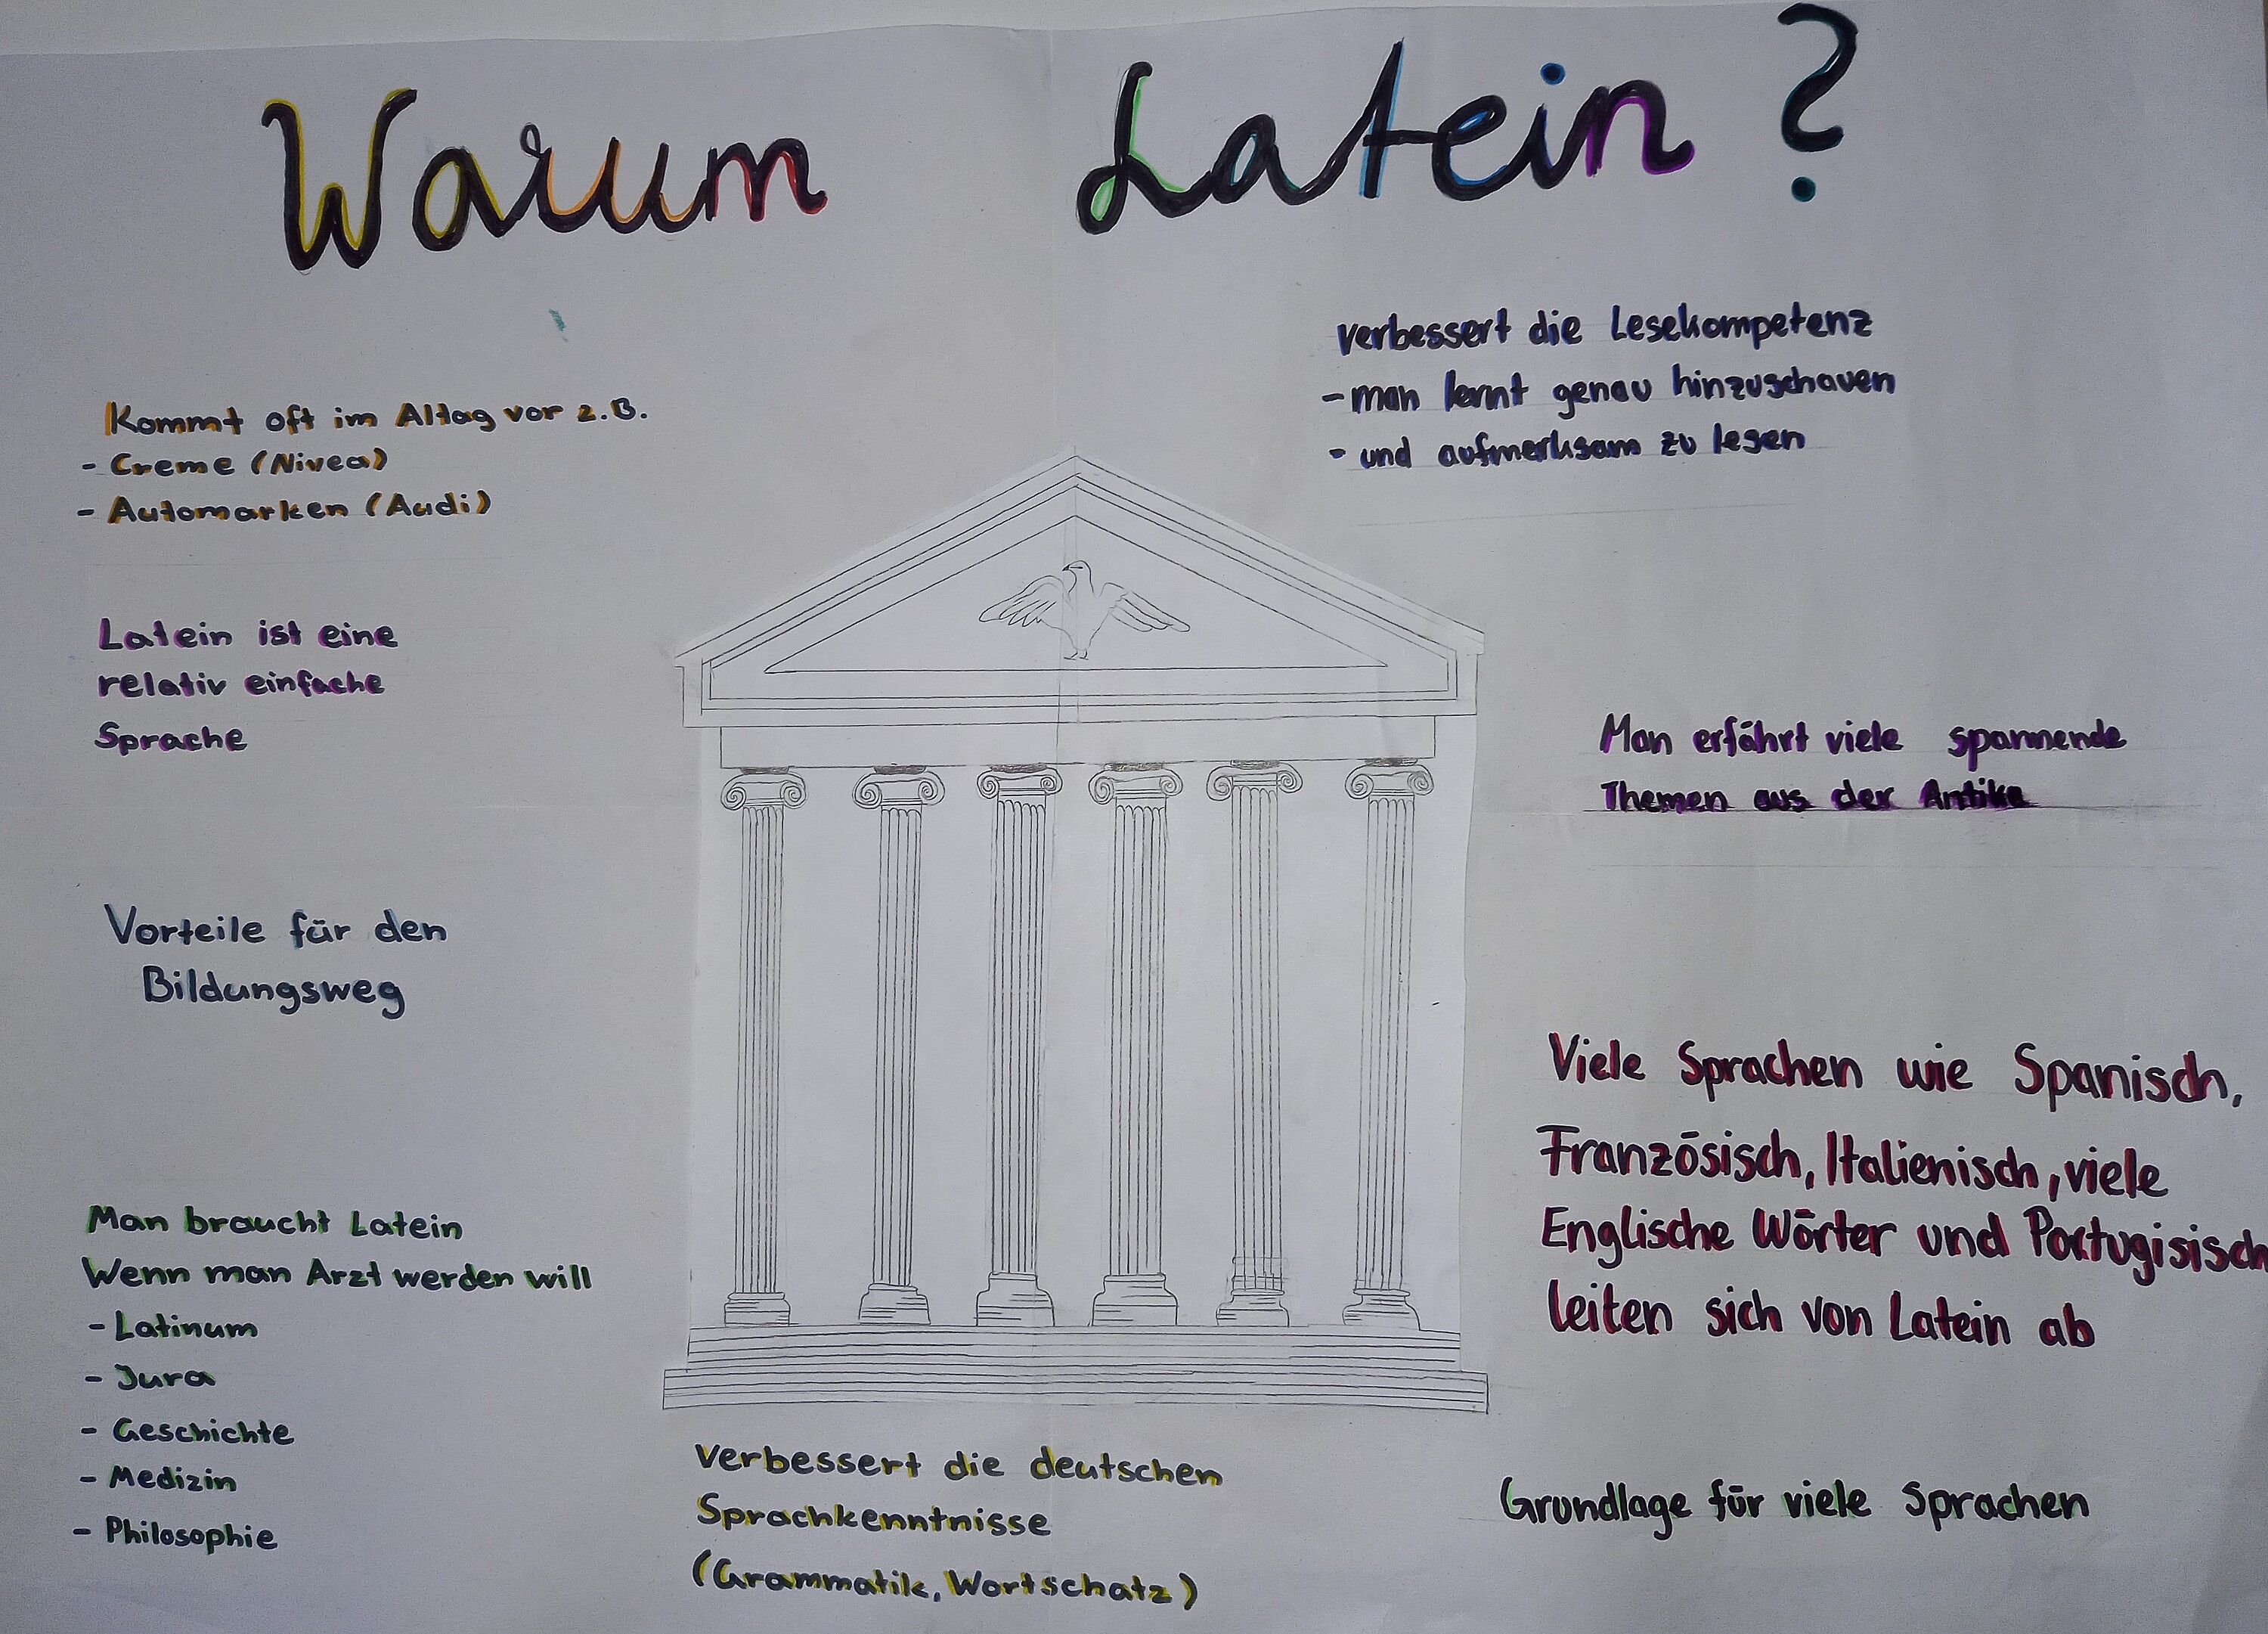 Warum Latein?
Kommt oft im Altag vor z.B.
- Creme (Nivea)
- Automarken (Audi)
Latein ist eine
relativ einfache
Sprache
Vorteile für den
Bildungsweg
Man braucht Latein
Wenn man Arzt werden will
- Latinum
- Jura
- Geschichte
- Medizin
- Philosophie
verbessert die deutschen
Sprachkenntnisse
(Grammatik, Wortschatz)
verbessert die Lesekompetenz
- man lernt genau hinzuschauen
- und aufmerksam zu lesen
Man erfährt viele spannende
Themen aus der Antike
Viele Sprachen wie Spanisch,
Französisch, Italienisch, viele
Englische Wörter und Portugisisch
leiten sich von Latein ab
Grundlage für viele Sprachen